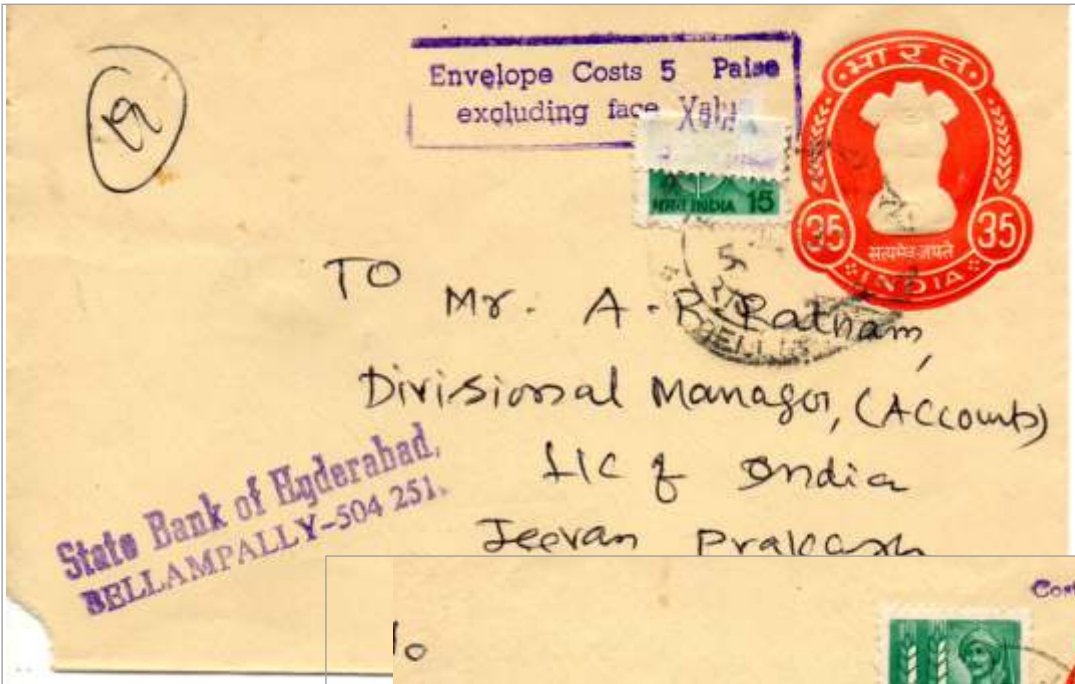 Envelope Costs 5 Paise
excluding face Value
भारत
भारत INDIA 15
35 35
सत्यमेव जयते
INDIA
TO
Mr. A. R. Ratnam,
Divisional Manager, (Accounts)
LIC of India
Jeevan Prakash
State Bank of Hyderabad,
BELLAMPALLY-504 251.